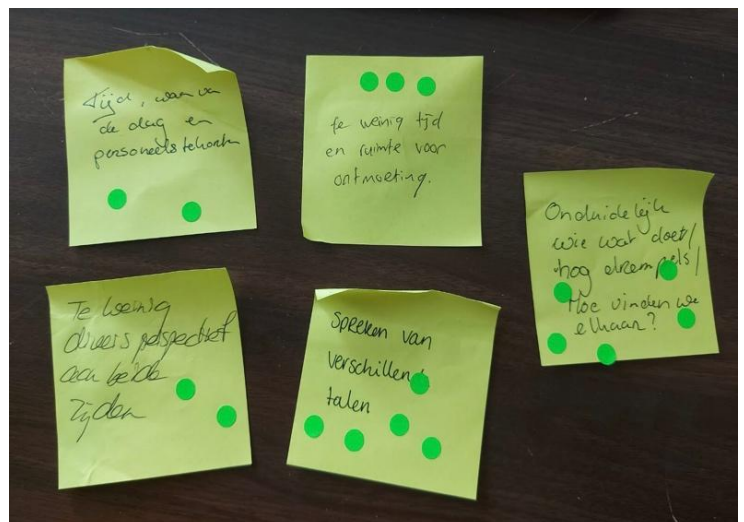 Tijd, waan van
de dag en
personeelstekorten
te weinig tijd
en ruimte voor
ontmoeting.
Onduidelijk
wie wat doet/
hog drempels/
Hoe vinden we
elkaar?
Te weinig
divers perspectief
aan beide
zijden
Spreken van
verschillende
talen